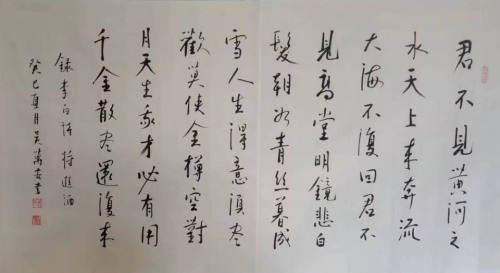 君不見黄河之
水天上来奔流
大海不復回君不
見高堂明鏡悲白
髮朝如青丝暮成
雪人生得意須盡
歡莫使金樽空對
月天生我才必有用
千金散盡還復来
錄李白詩將進酒
癸巳夏月吴萬安書